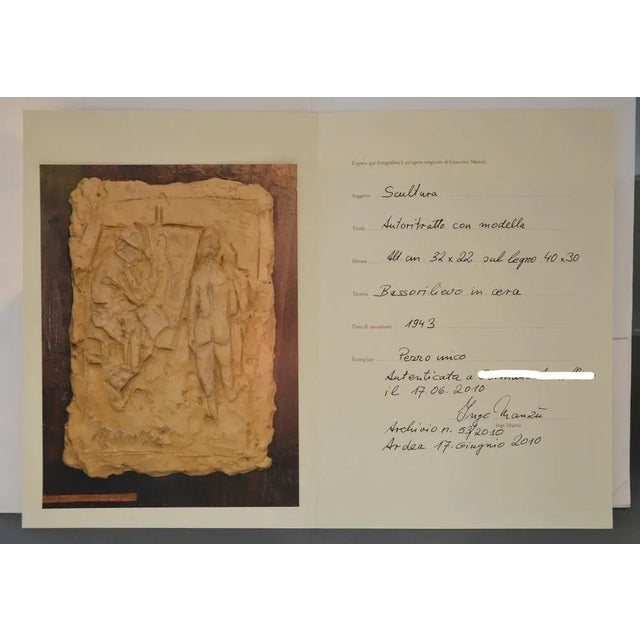 L'opera qui fotografata è un'opera originale di Giacomo Manzù
Soggetto Scultura
Titolo Autoritratto con modella
Misura Alt. cm 32 x 22 sul legno 40 x 30
Tecnica Bassorilievo in cera
Data di esecuzione 1943
Esemplare Pezzo unico
Autenticata a
il 17.06.2010
Inge Manzù
Inge Manzù
Archivio n. 53/2010
Ardea 17. Giugnio 2010
Manzù